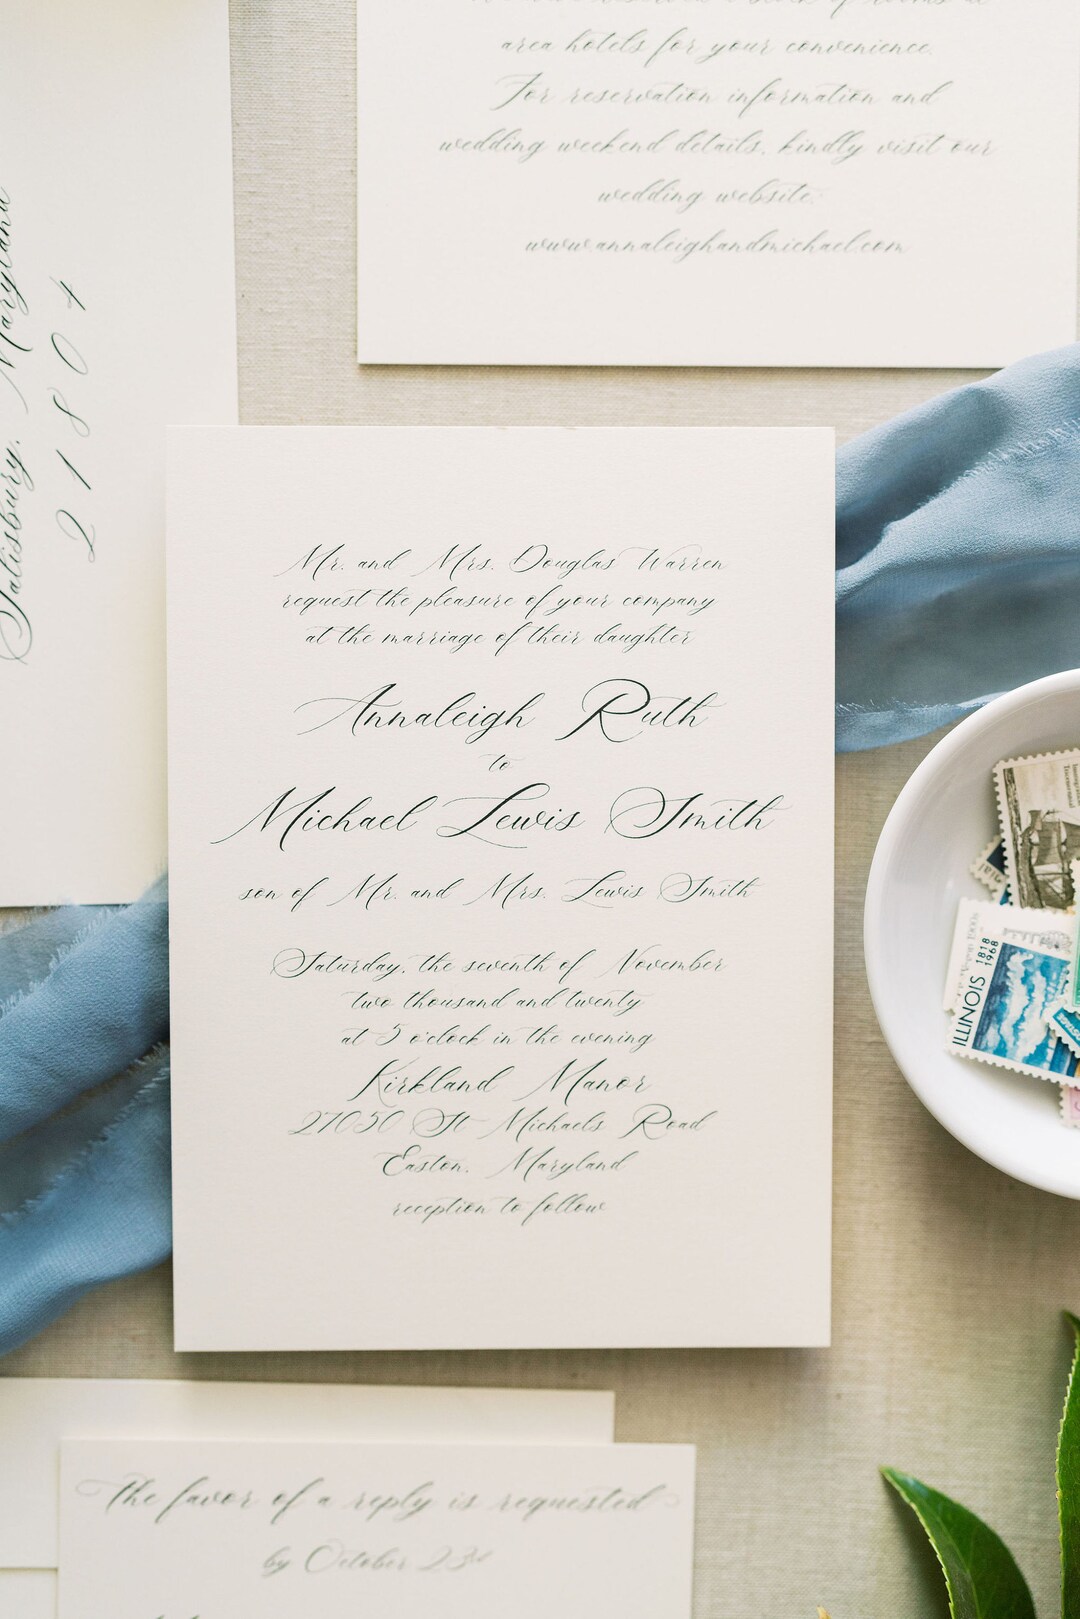 area hotels for your convenience.
For reservation information and
wedding weekend details, kindly visit our
wedding website:
www.annaleighandmichael.com
Salisbury, Maryland
21804
Mr. and Mrs. Douglas Warren
request the pleasure of your company
at the marriage of their daughter
Annaleigh Ruth
to
Michael Lewis Smith
son of Mr. and Mrs. Lewis Smith
Saturday, the seventh of November
two thousand and twenty
at 5 o'clock in the evening
Kirkland Manor
27050 St Michaels Road
Easton, Maryland
reception to follow
ILLINOIS 1818
1968
The favor of a reply is requested
by October 23rd